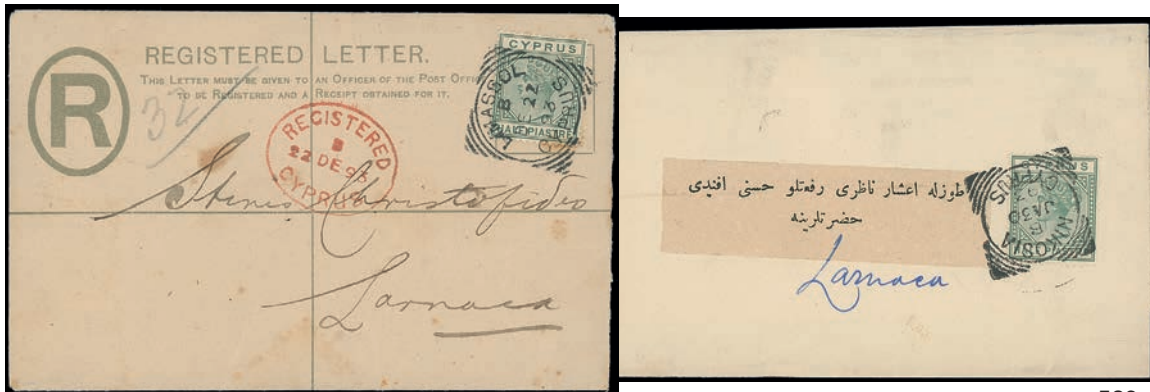 REGISTERED LETTER.
THIS LETTER MUST BE GIVEN TO AN OFFICER OF THE POST OFFICE
TO BE REGISTERED AND A RECEIPT OBTAINED FOR IT.
R
32
CYPRUS
HALF PIASTRE
LIMASSOL CYPRUS
B
DE 22
93
REGISTERED
22 DE 93
CYPRUS
Christofides
Larnaca
طوزله اعشار ناظری رفعتلو حسنی افندی
حضرتلرینه
Larnaca
NICOSIA CYPRUS
JA 30